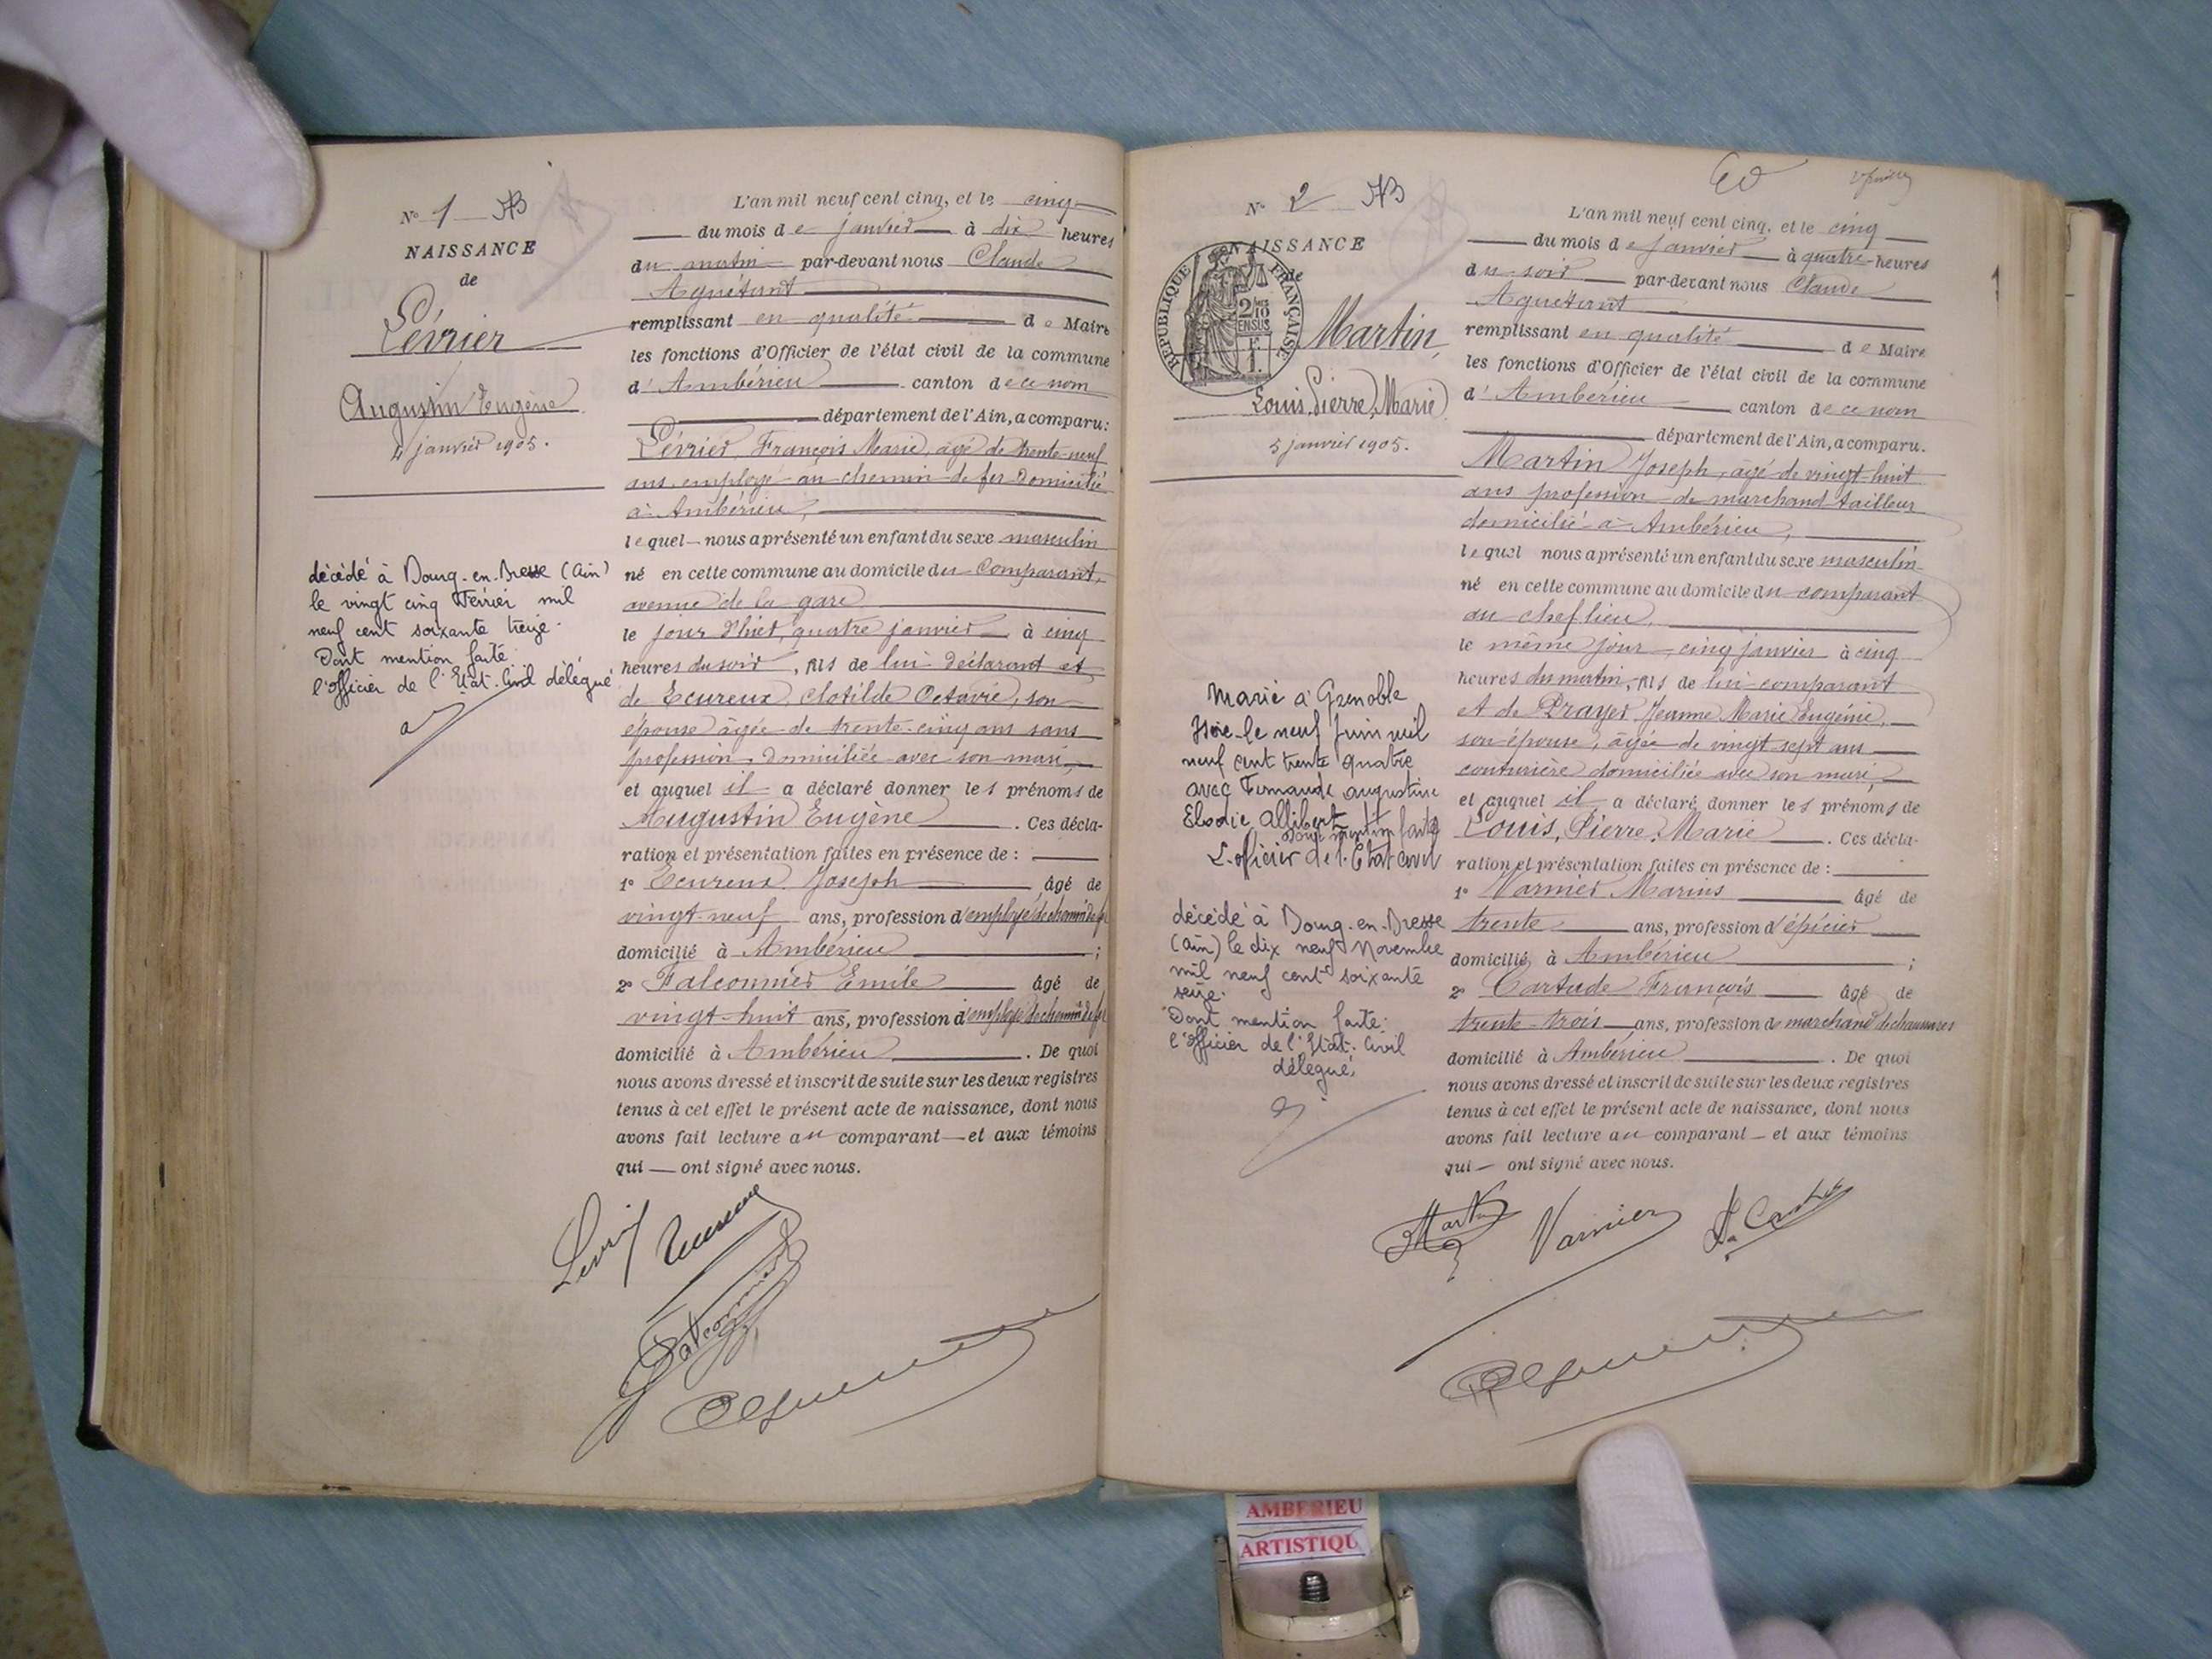 N° 1
NAISSANCE
de
Lévrier
Augustin Eugène
4 janvier 1905.
décédé à Bourg-en-Bresse (Ain)
le vingt cinq Février mil
neuf cent soixante treize.
Dont mention faite
l'officier de l'Etat-Civil délégué
L'an mil neuf cent cinq, et le cinq
du mois de janvier à dix heures
du matin par-devant nous Claude
Aguétant
remplissant en qualité de Maire
les fonctions d'Officier de l'état civil de la commune
d'Ambérieu canton de ce nom
département de l'Ain, a comparu:
Lévrier, François Marie, âgé de trente-neuf
ans, employé au chemin de fer domicilié
à Ambérieu,
lequel nous a présenté un enfant du sexe masculin
né en cette commune au domicile du Comparant,
avenue de la gare
le jour d'hier, quatre janvier à cinq
heures du soir, fils de lui déclarant et
de Ecureux, Clotilde Octavie, son
épouse âgée de trente-cinq ans sans
profession, domiciliée avec son mari,
et auquel il a déclaré donner les prénoms de
Augustin Eugène. Ces décla-
ration et présentation faites en présence de :
1° Ecureux Joseph âgé de
vingt-neuf ans, profession d'employé de chemin de fer
domicilié à Ambérieu ;
2° Falconnier Emile âgé de
vingt-huit ans, profession d'employé de chemin de fer
domicilié à Ambérieu. De quoi
nous avons dressé et inscrit de suite sur les deux registres
tenus à cet effet le présent acte de naissance, dont nous
avons fait lecture au comparant et aux témoins
qui ont signé avec nous.
Falconnier
N° 2
NAISSANCE
de
RÉPUBLIQUE FRANÇAISE
Martin,
Louis, Pierre, Marie
5 janvier 1905.
Marié à Grenoble
Isère le neuf Juin mil
neuf cent trente quatre
avec Fernande Augustine
Elodie Allibert
Dont mention faite
L'officier de l'Etat civil
décédé à Bourg-en-Bresse
(Ain) le dix neuf Novembre
mil neuf cent soixante
seize.
Dont mention faite:
l'officier de l'Etat-Civil
délégué,
L'an mil neuf cent cinq, et le cinq
du mois de janvier à quatre heures
du soir par-devant nous Claude
Aguétant
remplissant en qualité de Maire
les fonctions d'Officier de l'état civil de la commune
d'Ambérieu canton de ce nom
département de l'Ain, a comparu.
Martin Joseph, âgé de vingt-huit
ans profession de marchand tailleur
domicilié à Ambérieu,
lequel nous a présenté un enfant du sexe masculin
né en cette commune au domicile du comparant
au chef lieu,
le même jour cinq janvier à cinq
heures du matin, fils de lui comparant
et de Prayer Jeanne Marie Eugénie,
son épouse, âgée de vingt sept ans
couturière domiciliée avec son mari,
et auquel il a déclaré donner les prénoms de
Louis, Pierre, Marie. Ces décla-
ration et présentation faites en présence de :
1° Varnier Marius âgé de
trente ans, profession d'épicier
domicilié à Ambérieu ;
2° Cartade François âgé de
trente-trois ans, profession de marchand de chaussures
domicilié à Ambérieu. De quoi
nous avons dressé et inscrit de suite sur les deux registres
tenus à cet effet le présent acte de naissance, dont nous
avons fait lecture au comparant et aux témoins
qui ont signé avec nous.
Martin Varnier
AMBERIEU
ARTISTIQU